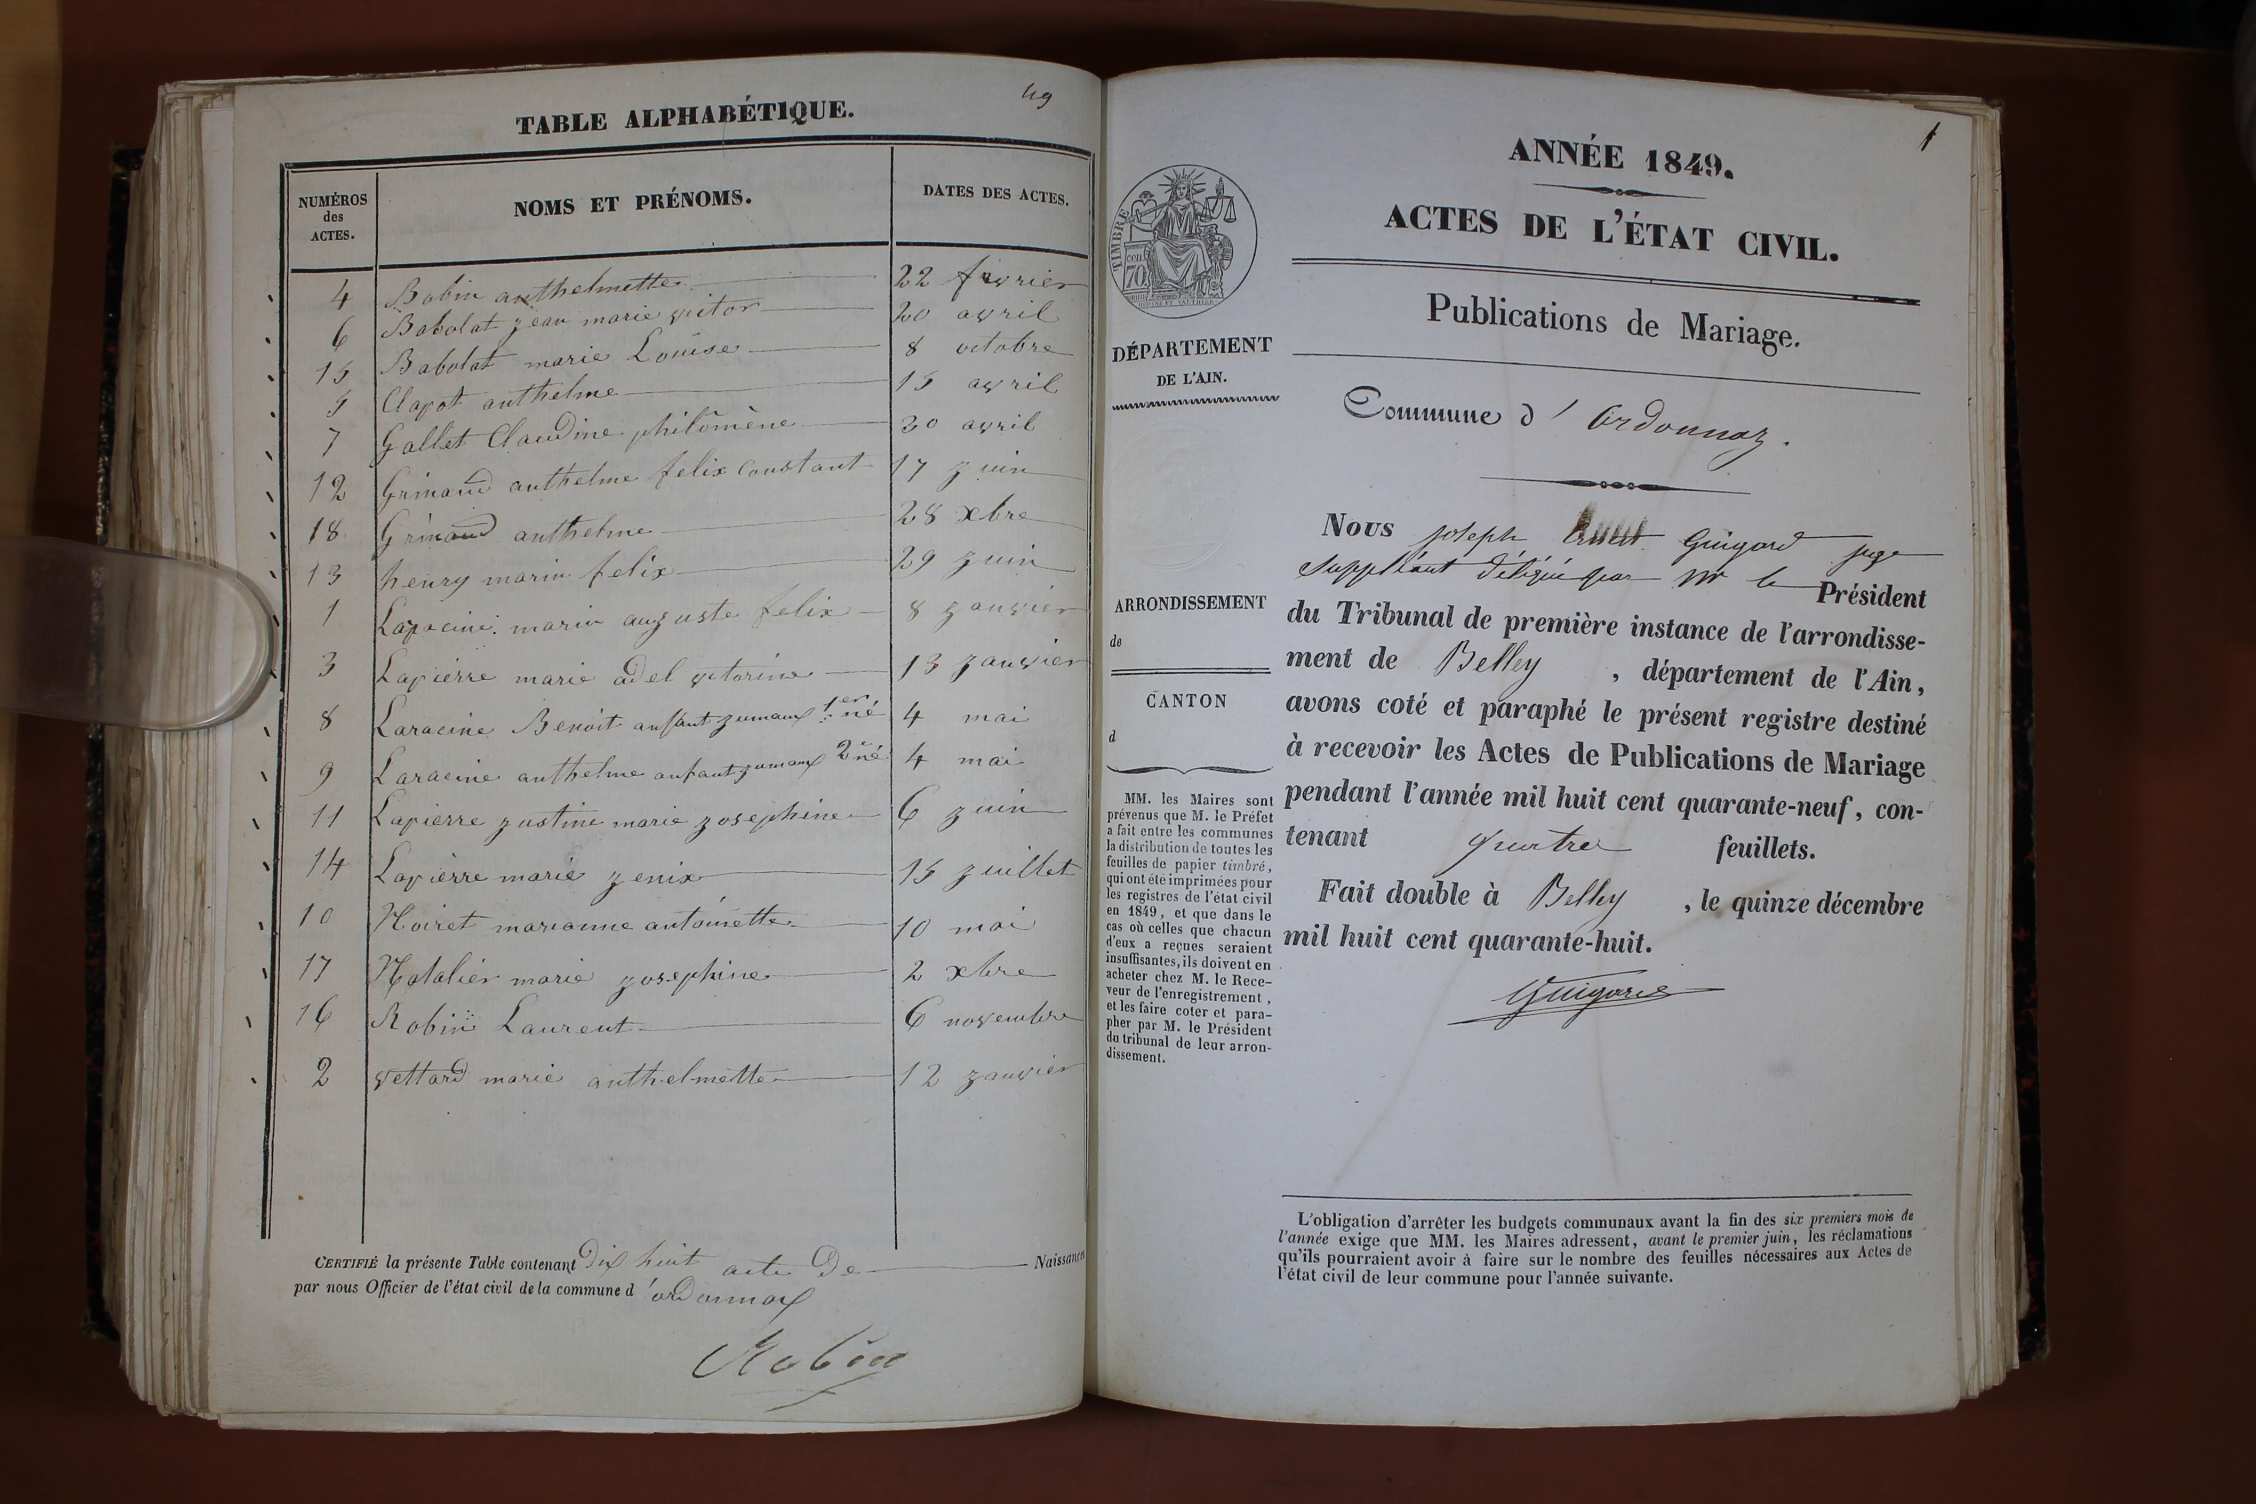 49
TABLE ALPHABÉTIQUE.
NUMÉROS des ACTES.
NOMS ET PRÉNOMS.
DATES DES ACTES.
4 Bobin anthelmette 22 fevrier
6 Babolat jean marie vitor 20 avril
15 Babolat marie Louise 8 octobre
5 Clapot anthelme 15 avril
7 Gallet Claudine philomène 30 avril
12 Grinand anthelme felix constant 17 juin
18 Grinand anthelme 28 xbre
13 henry marin felix 29 juin
1 Laracine marin auguste felix 8 janvier
3 Lapierre marie adel vitorine 13 janvier
8 Laracine Benoit anfant jumaux 1er né 4 mai
9 Laracine anthelme anfant jumaux 2e né 4 mai
11 Lapierre justine marie josephine 6 juin
14 Lapierre marie jenix 15 juillet
10 Noiret marianne antoinette 10 mai
17 Natalier marie josephine 2 xbre
16 Robin Laurent 6 novembre
2 vettard marie anthelmette 12 janvier
CERTIFIÉ la présente Table contenant Dix huit acte De Naissances
par nous Officier de l'état civil de la commune d'ordonnax
Robin
1
ANNÉE 1849.
ACTES DE L'ÉTAT CIVIL.
Publications de Mariage.
Commune d'Ordonnaz.
TIMBRE
70
DÉPARTEMENT
DE L'AIN.
ARRONDISSEMENT
de
CANTON
d
MM. les Maires sont
prévenus que M. le Préfet
a fait entre les communes
la distribution de toutes les
feuilles de papier timbré,
qui ont été imprimées pour
les registres de l'état civil
en 1849, et que dans le
cas où celles que chacun
d'eux a reçues seraient
insuffisantes, ils doivent en
acheter chez M. le Rece-
veur de l'enregistrement,
et les faire coter et para-
pher par M. le Président
du tribunal de leur arron-
dissement.
NOUS joseph Guigard juge
Suppléant délégué par Mr le Président
du Tribunal de première instance de l'arrondisse-
ment de Belley, département de l'Ain,
avons coté et paraphé le présent registre destiné
à recevoir les Actes de Publications de Mariage
pendant l'année mil huit cent quarante-neuf, con-
tenant quatre feuillets.
Fait double à Belley, le quinze décembre
mil huit cent quarante-huit.
Guigard
L'obligation d'arrêter les budgets communaux avant la fin des six premiers mois de
l'année exige que MM. les Maires adressent, avant le premier juin, les réclamations
qu'ils pourraient avoir à faire sur le nombre des feuilles nécessaires aux Actes de
l'état civil de leur commune pour l'année suivante.